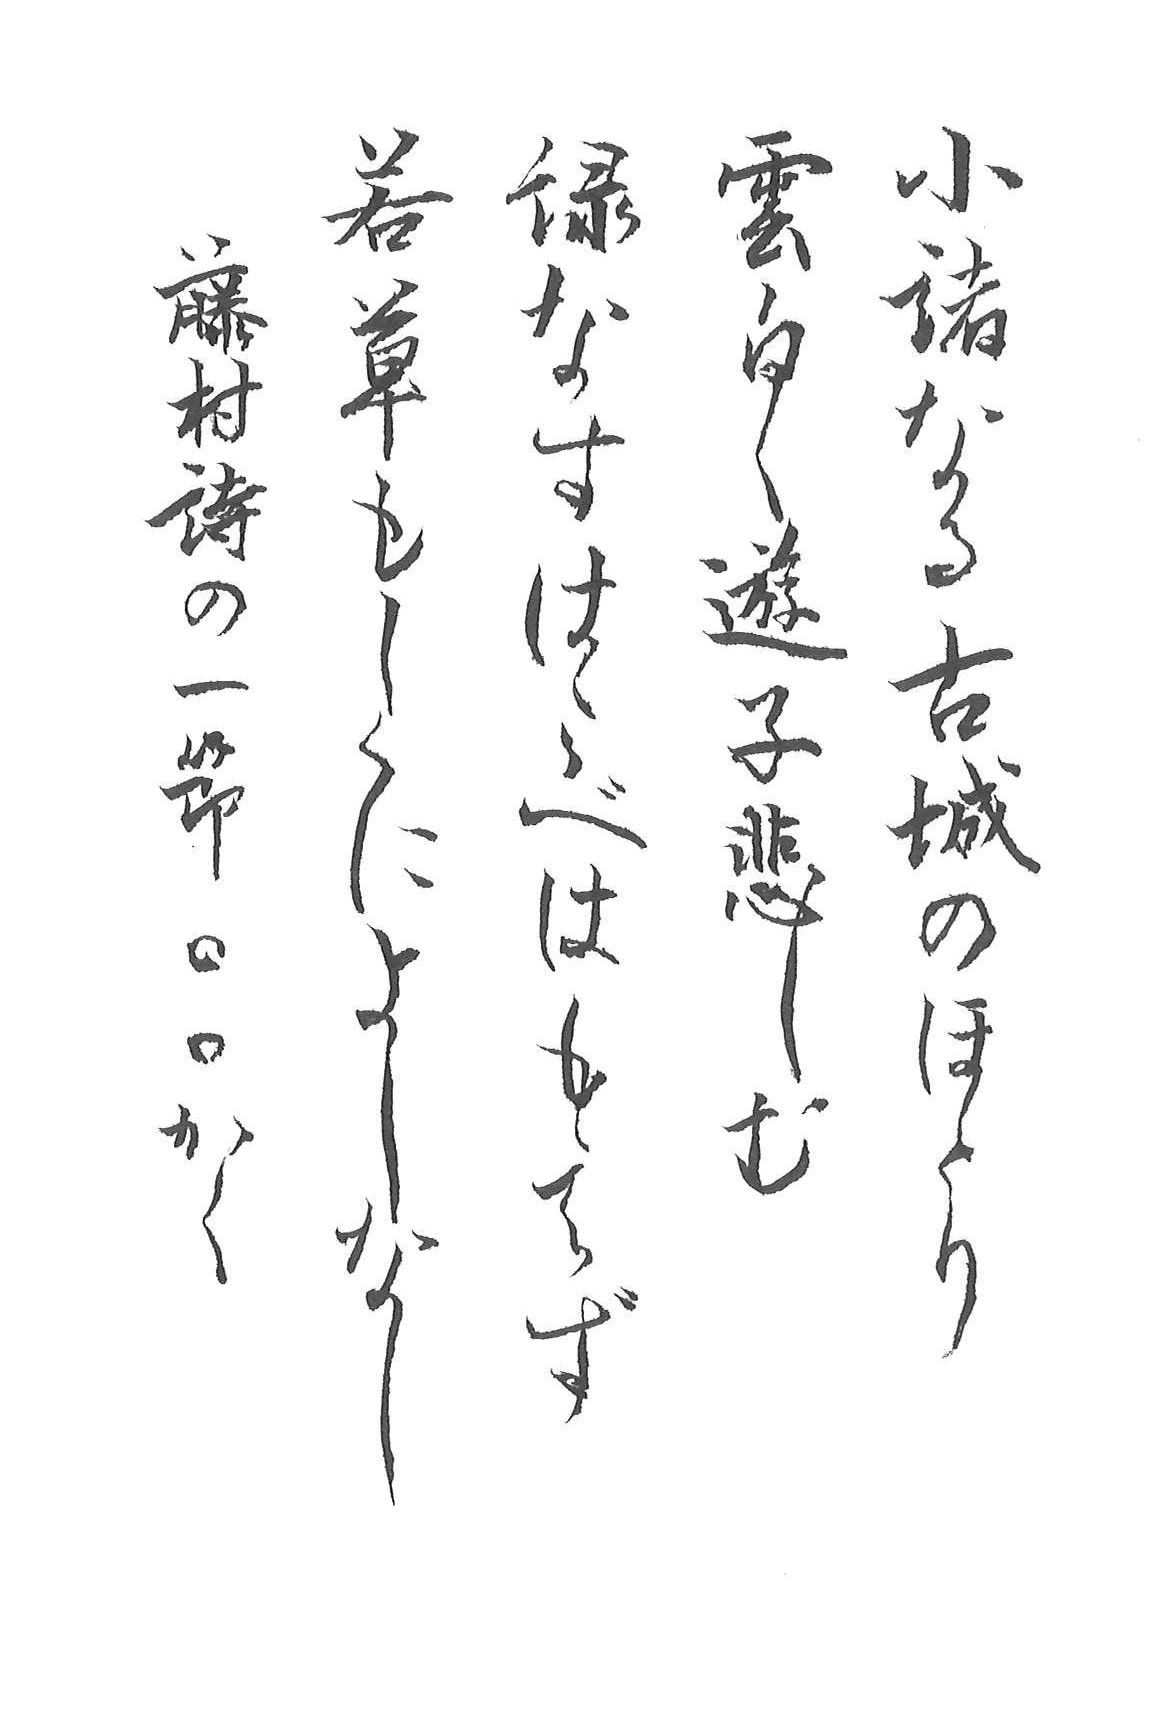 小諸なる古城のほとり
雲白く遊子悲しむ
緑なすはこべはもえず
若草もしくによしなし
藤村詩の一節 □□かく